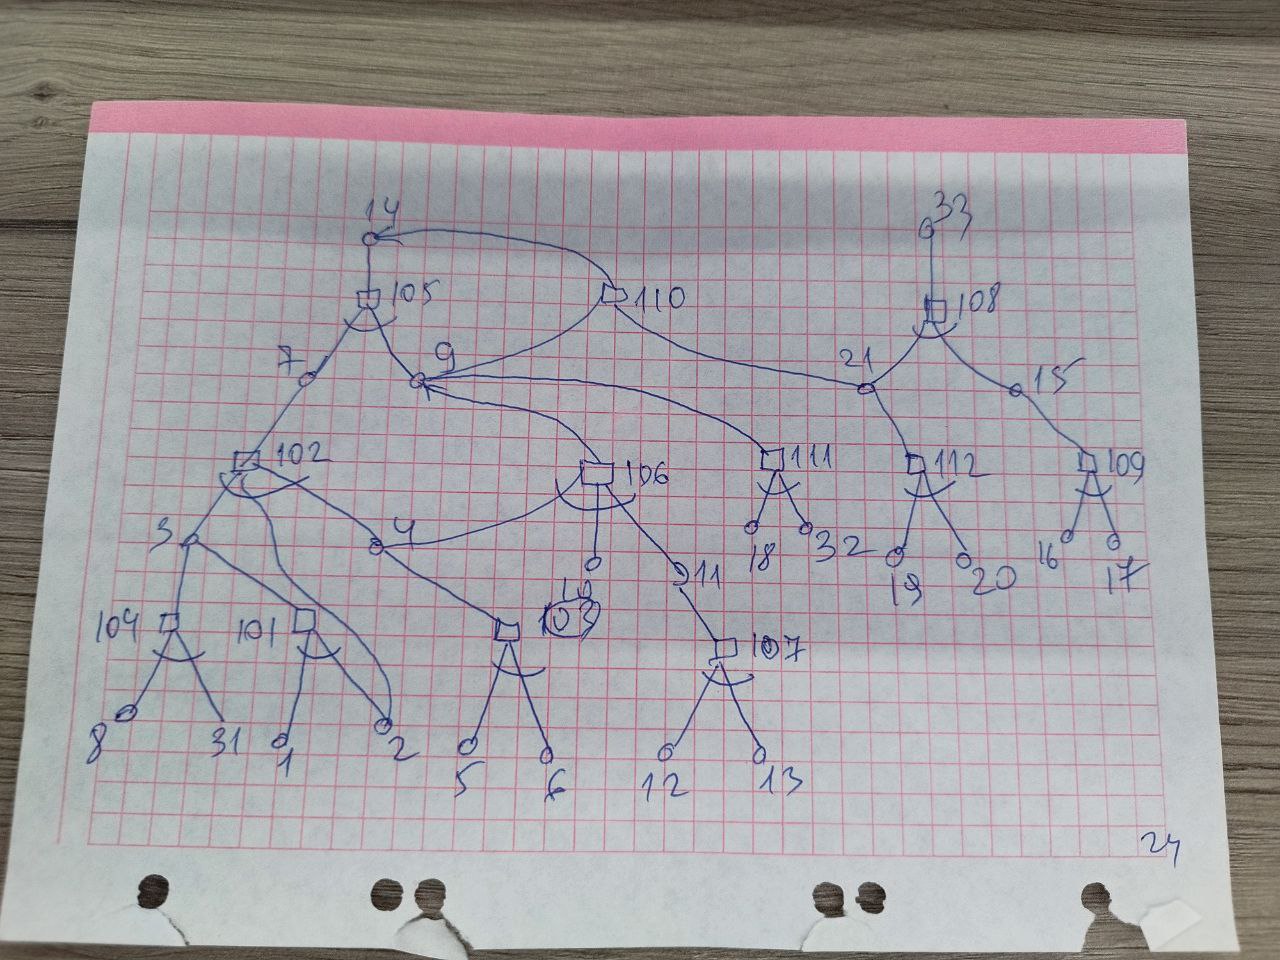 14
33
105
110
108
7
9
21
15
102
106
111
112
109
3
4
18
32
19
20
16
17
10
11
103
104
101
107
8
31
1
2
5
6
12
13
24